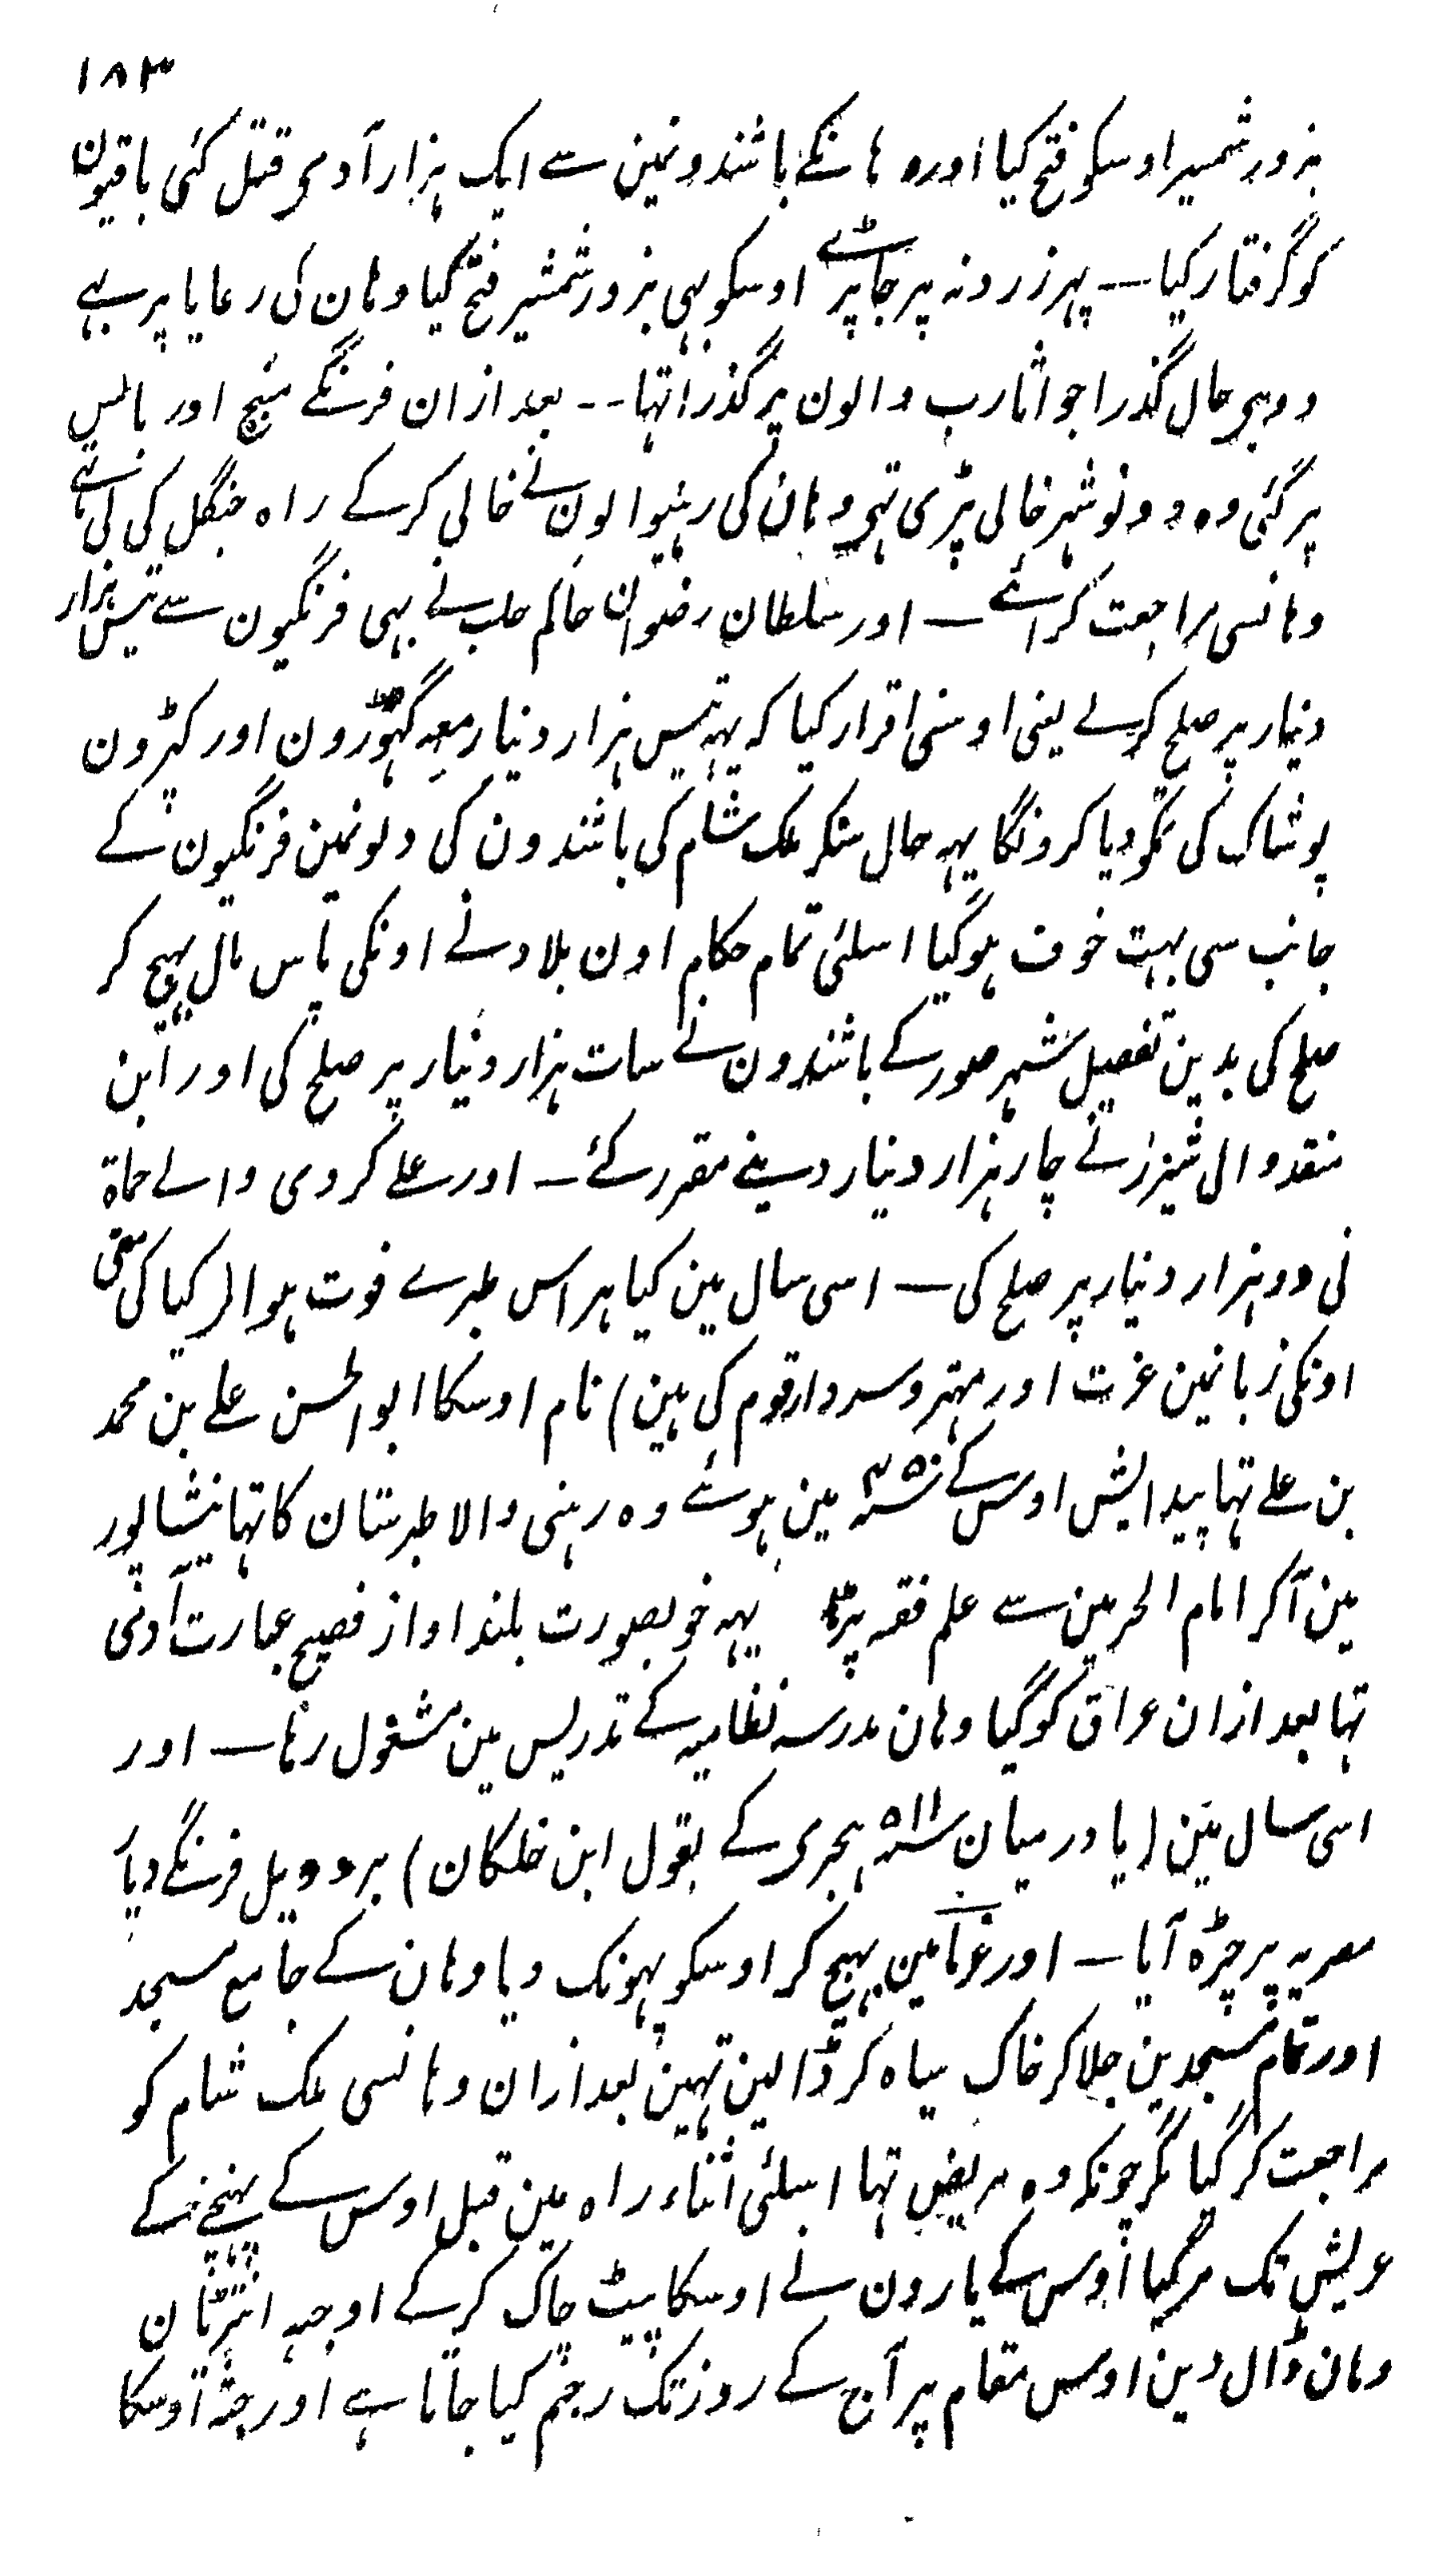 ۱۸۳
بزور شمسیر اوسکو فتح کیا اور وہانکے باشندونمین سے ایک ہزار آدمی قتل کئی باقیون
کو گرفتار کیا -- پہر زردنہ پر جا پڑے اوسکو بہی بزور شمشیر فتح کیا وہان کی رعایا پر بہے
وہی حال گذرا جو اثارب والون پر گذرا تہا -- بعد ازان فرنگے منبج اور بالس
پر گئی وہ دونو شہر خالی پڑی تہی وہان کی رہنیوالون نے خالی کرکے راہ جنگل کی لی تہے
وہانسی مراجعت کر ائے — اور سلطان رضوان حاکم حلب نے بہی فرنگیون سے تیس ہزار
دنیار پر صلح کرلے یعنی اوسنی اقرار کیا کہ یہہ تیس ہزار دنیار معہ گہوڑون اور کپڑون
پوشاک کی تمکو دیا کرونگا یہہ حال سنکر ملک شام کی باشندون کی دلونمین فرنگیون کے
جانب سی بہت خوف ہوگیا اسلئی تمام حکام اون بلاد نے اونکی پاس مال بہیج کر
صلح کی بدین تفصیل شہر صور کے باشندون نے سات ہزار دنیار پر صلح کی اور ابن
منقذ والی شیزر نے چار ہزار دنیار دینے مقرر کئے — اور علے کردی والے حماۃ
نی دو ہزار دنیار پر صلح کی — اسی سال مین کیا ہراس طبرے فوت ہوا (کیا کی معنی
اونکی زبانمین عزت اور مہتر و سردار قوم کی ہین) نام اوسکا ابو الحسن علے بن محمد
بن علے تہا پیدایش اوس کے ۴۵۰ سنہ مین ہوئے وہ رہنی والا طبرستان کا تہا نیشاپور
مین آکر امام الحرمین سے علم فقہ پڑہا یہہ خوبصورت بلند اواز فصیح عبارت آدمی
تہا بعد ازان عراق کو گیا وہان مدرسہ نظامیہ کے تدریس مین مشغول رہا — اور
اسی سال مین (یا درمیان سنہ ۵۱۱ ہجری کے بقول ابن خلکان) بردویل فرنگے دیار
مصریہ پر چڑہ آیا — اور فرما مین پہنچ کر اوسکو پہونک دیا وہان کے جامع مسجد
اور تمام مسجدین جلا کر خاک سیاہ کر ڈالین تہین بعد ازان وہانسی ملک شام کو
مراجعت کر گیا مگر چونکہ وہ مریض تہا اسلئی اثناء راہ مین قبل اوس کے پہنچنے کے
عریش تک مر گیا اوس کے یارون نے اوسکا پیٹ چاک کرکے اوجہہ انتڑیان
وہان ڈال دین اوس مقام پر آج کے روز تک رجم کیا جاتا ہے اور جثہ اوسکا